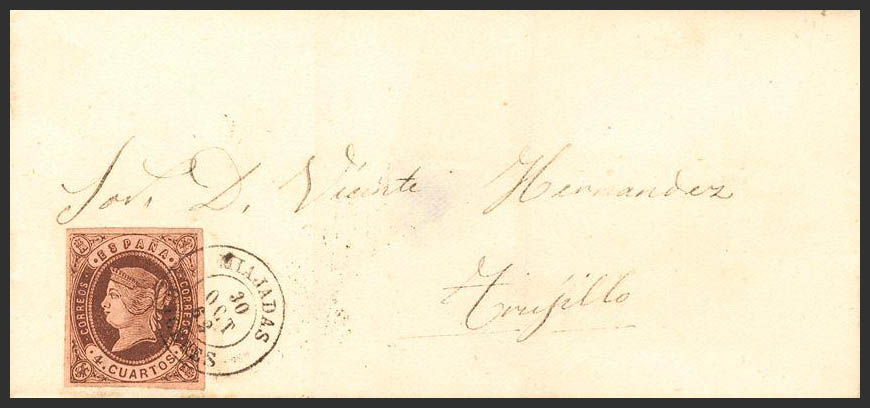 Sor. D. Vicente Hernandez
Trujillo
ESPAÑA
CORREOS
CORREOS
4. CUARTOS.
MIAJADAS
30
OCT
62
CACERES